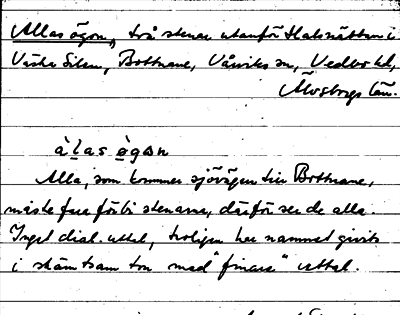 Allas ögon, två stenar utanför Hultsnäsen i
Västra Silen, Bottnane, Vårviks sn, Vedbo hd,
Älvsborgs län.
àl̲as ö̲gon
Alla, som kommer sjövägen till Bottnane,
måste fara förbi stenarna, därför ser de alla.
Inget dial. uttal, troligen har namnet givits
i skämtsam ton med "finare" uttal.